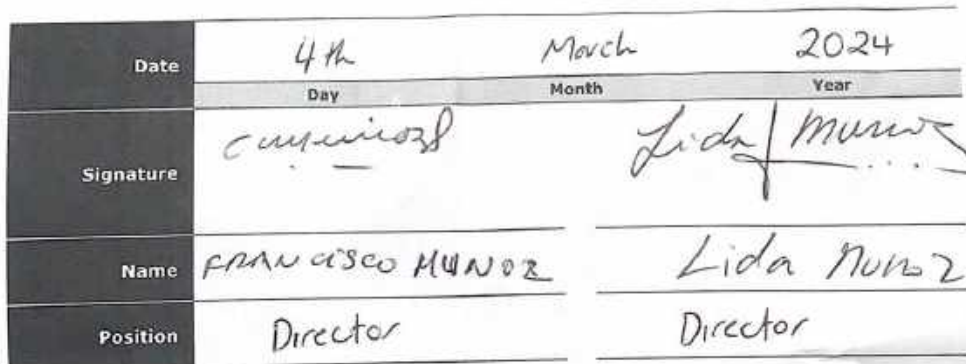 Date 4th March 2024
Day Month Year
Signature Lida Munoz
Name FRANCISCO MUNOZ Lida Munoz
Position Director Director